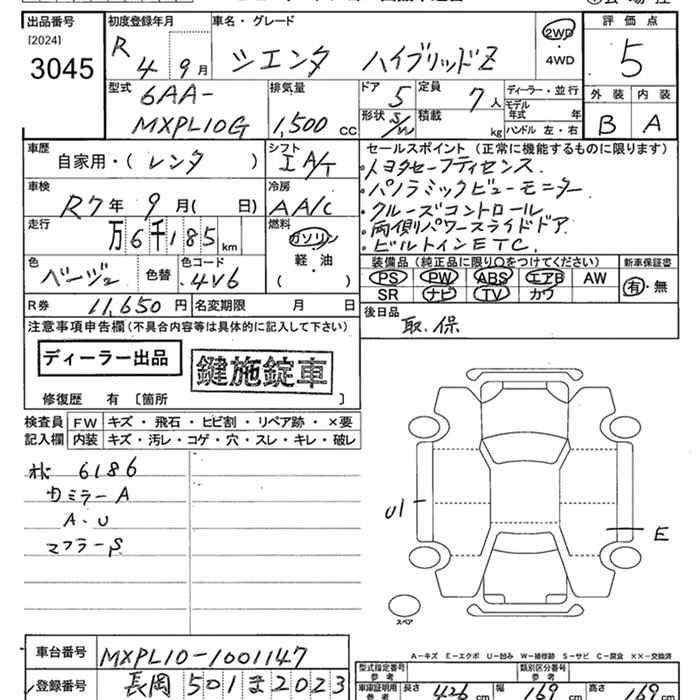 出品番号 初度登録年月 車名・グレード 評価点
[2024]
3045
R 4 9月 シエンタ ハイブリッドZ 2WD・4WD 5
型式 排気量 ドア 定員 ディーラー・並行 外装 内装
6AA-
MXPL10G 1,500 CC 5 7人 モデル年式 年 B A
形状 S/W 積載 kg ハンドル 左・右
車歴 自家用・(レンタ) シフト IA/T
車検 R7年 9月( 日) 冷房 AA/C
走行 万6千185km 燃料 ガソリン 軽・油 ( )
色 ベージュ 色替 色コード 4V6
R券 11,650円 名変期限 月 日
セールスポイント(正常に機能するものに限ります)
・トヨタセーフティセンス.
・パノラミックビューモニター
・クルーズコントロール
・両側パワースライドドア.
・ビルトインETC.
装備品(純正品に限り○をつけてください) 新車保証書
PS PW ABS エアB AW 有・無
SR ナビ TV カワ
後日品 取.保
注意事項申告欄(不具合内容等は具体的に記入して下さい)
ディーラー出品 鍵施錠車
修復歴 有 〔箇所 〕
検査員記入欄 FW キズ・飛石・ヒビ割・リペア跡・×要
内装 キズ・汚レ・コゲ・穴・スレ・キレ・破レ
6186
ミラーA
A・U
マフラーS
U1
E
スペア
A-キズ E-エクボ U-凹み W-補修跡 S-サビ C-腐食 ××-交換済
車台番号 MXPL10-1001147
登録番号 長岡501ま2023
型式指定番号 参考 類別区分番号 参考
車庫証明用 参考 長さ 426cm 幅 169cm 高さ 169cm